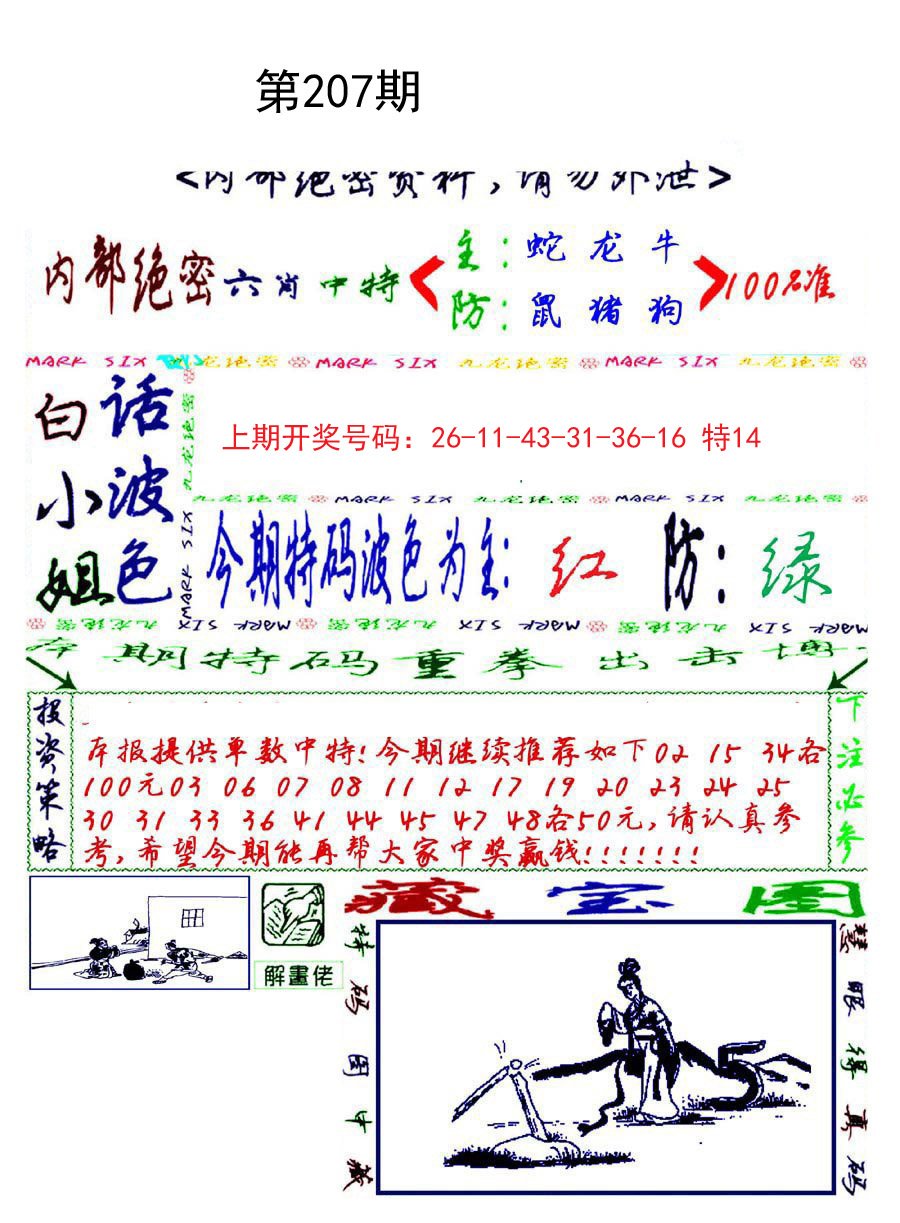 第207期
<内部绝密资料，请勿外泄>
内部绝密六肖中特
主：蛇 龙 牛
防：鼠 猪 狗
100%准
MARK SIX 九龙绝密 MARK SIX 九龙绝密 MARK SIX 九龙绝密
白话
小波
姐色
九龙绝密 MARK SIX
上期开奖号码：26-11-43-31-36-16 特14
九龙绝密 MARK SIX 九龙绝密 MARK SIX 九龙绝密
今期特码波色为主：红 防：绿
九龙绝密 MARK SIX 九龙绝密 MARK SIX 九龙绝密 MARK SIX
本期特码重拳出击博
投资策略
本报提供单数中特!今期继续推荐如下02 15 34各
100元03 06 07 08 11 12 17 19 20 23 24 25
30 31 33 36 41 44 45 47 48各50元,请认真参
考,希望今期能再帮大家中奖赢钱!!!!!!!
下注必参
解畫佬
藏宝图
特码图中藏
慧眼得真码